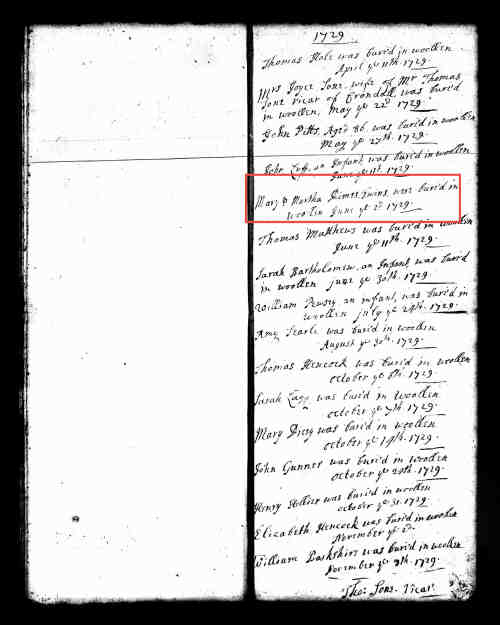 1729
Thomas Hole was buried in woollen
April ye 11th 1729.
Mrs Joyce Sone, wife of Mr Thomas
Sone Vicar of Crondall, was buried
in woollen, May ye 22d 1729.
John Pitts, Aged 86, was buried in woollen
May ye 27th. 1729.
John, an Infant, was buried in woollen
June ye 1st. 1729.
Mary & Martha Twins, were buried in
woollen June ye 2d 1729.
Thomas Matthews was buried in woollen
June ye 11th. 1729.
Sarah Bartholomew, an Infant, was buried
in woollen June ye 30th. 1729.
William an infant, was buried in
woollen July ye 24th. 1729.
Amy Searle was buried in woollen
August ye 30th. 1729.
Thomas Hencock was buried in woollen
October ye 6th. 1729.
Sarah was buried in woollen
October ye 7th. 1729.
Mary was buried in woollen
October ye 14th. 1729.
John Gunner was buried in woollen
October ye 29th. 1729.
Henry Hollier was buried in woollen
October ye 31. 1729.
Elizabeth Hencock was buried in woollen
November ye
William was buried in woollen
November ye 9th. 1729.
Tho: Sone. Vicar.